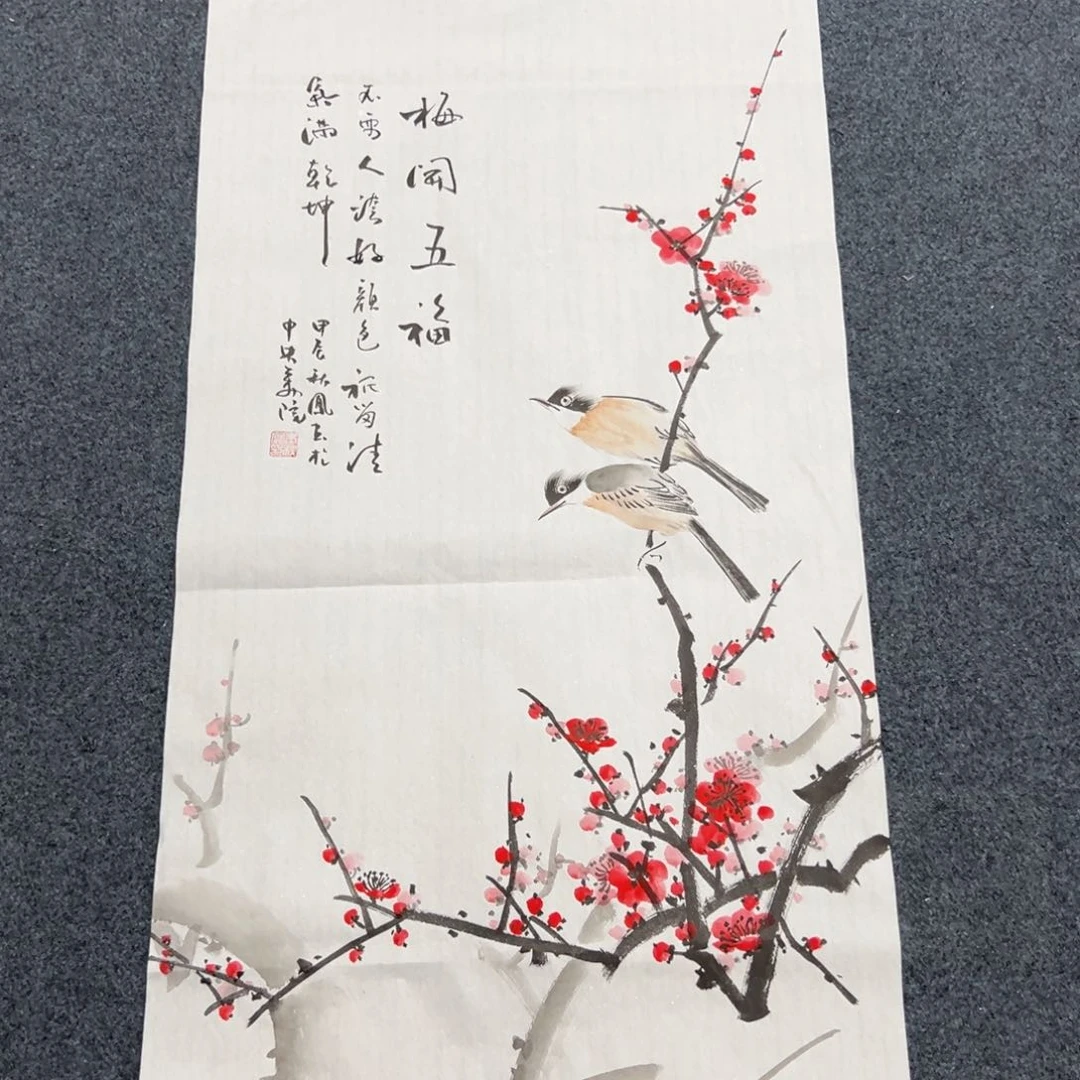 梅開五福
不要人誇好顏色祇留清
氣滿乾坤
甲辰秋鳳玉於
中央美院